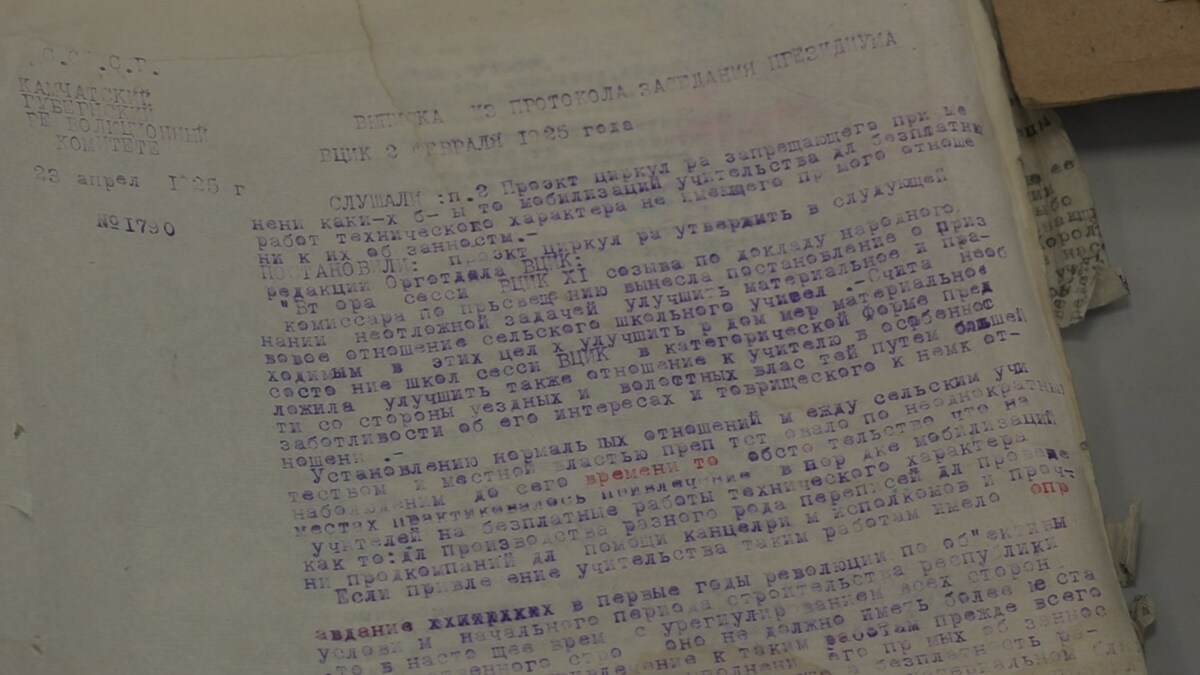 .С.С .С.Р.
КАМЧАТСКИЙ
ГУБЕРНСК
РЕ ВОЛЮЦИОННЫЙ
КОМИТЕТЕ
23 апрел 1925 г
№1790
ВЫПИСКА ИЗ ПРОТОКОЛА ЗАСЕДАНИЯ ПРЕЗИДИУМА
ВЦИК 2 ФЕВРАЛЯ 1925 года
СЛУШАЛИ :п.2 Проэкт циркул ра запрещающего при ме
нени каки-х б- ы то мобилизаций учительства дл безплатны
работ технического характера не имеющего пр мого отноше
ни к их об занносты.-
ПОСТАНОВИЛИ: проэкт циркул ра утвердить в слудующей
редакции Орготдела ВЦИК:
"Вт ора сесси ВЦИК XI созыва по докладу народного
комиссара по прьсвещению вынесла постановление о приз
нании неотложной задачей улучшить материальное и пра-
вовое отношение сельского школьного учител .-Счита необ
ходимым в этих цел х улучшить р дом мер материальное
состо ние школ сесси ВЦИК в категорической форме пред
ложила улучшить также отношение к учителю в особеннос
ти со стороны уездных и волостных влас тей путем большей
заботливости об его интересах и товрищеского к немк от-
ношени .-
Установлению нормаль ных отношений м ежду сельским учи
теством и местной властью преп тст овало по неоднократным
наболюдениям до сего времени то обсто тельство что на
местах практиковалось привлечение в пор дке мобилизаций
учителей на безплатные работы технического характера
как то:дл производства разного рода переписей дл проведе
ни продкомпаний дл помощи канцелри м исполкомов и проч-
Если привле ение учительства таким работам имело опр
авдание в первые годы революции по об"ективны
услови м начального периода строительства республики
то в насто щее врем с урегулированием всех сторон
ственного стро оно не должно иметь более ме ста
к таким работам прежде всего
его пр мых об заннос
безплатность ра-